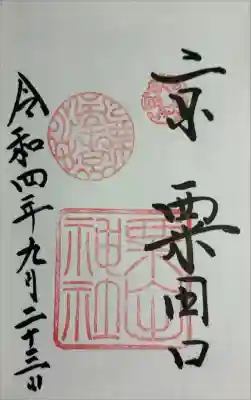 京 粟田口
粟田神社
令和四年九月二十三日